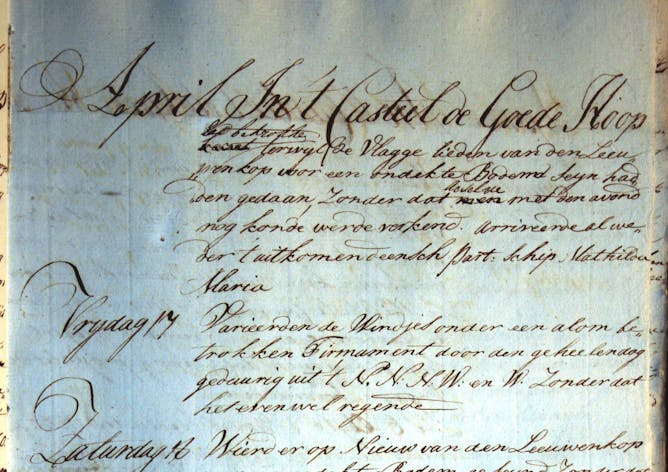 April In't Casteel de Goede Hoop
terwyl de Vlagge lieden van den Leeu-
wenkop voor een ondekte Bodem Seyn had
den gedaan, Zonder dat deselve men met den avond
nog konde werde verkend. arriveerde al we-
der t uitkomend deensch part: schip. Mathilda
Maria
Vrydag 17 Varieerden de Windjes onder een alom be-
trokken Firmament door den geheelen dag
geduurig uit 't N. N. N. W. en W. Zonder dat
het evenwel regende
Zaturdag 18 Wierd er op Nieuw van den Leeuwenkop